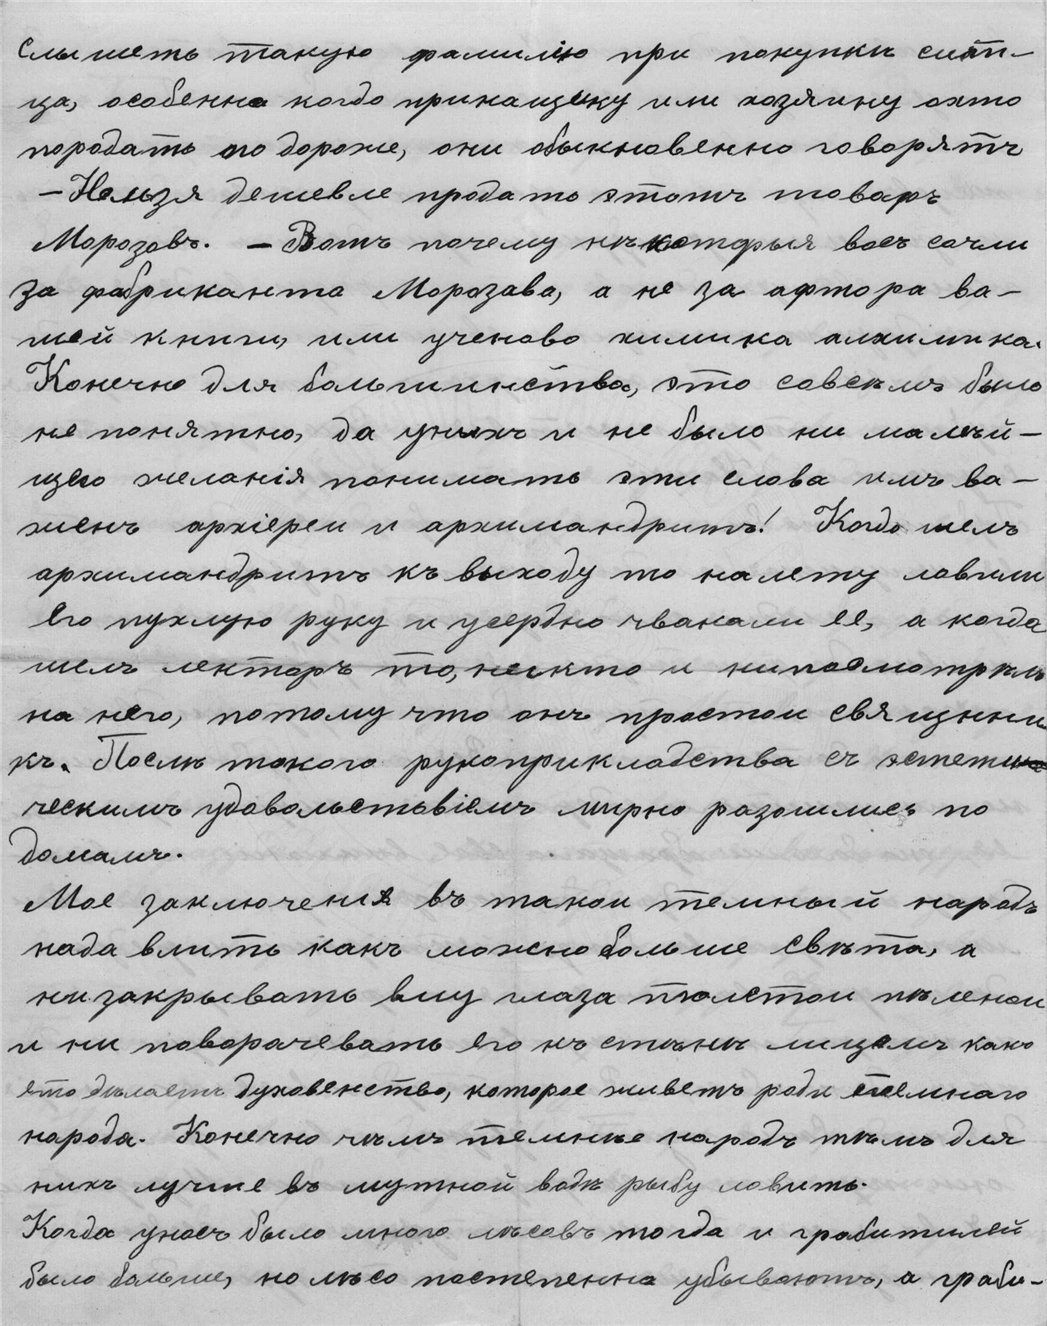 слышеть такую фамилію при покупки сит-
ца, особенна когдо приказщику или хозяину охто
породать по дороже, они обыкновенно говорятъ
— Нельзя дешевле продать этотъ товаръ
Морозовъ. — Вотъ почему нѣкоторыя васъ сочли
за фабриканта Морозава, а не за афтора ва-
шей книги, или ученово химика алхимика.
Конечно для большинства, это совсѣмъ было
не понятно, да унихъ и не было ни малѣй-
щего желанія понимать эти слова имъ ва-
женъ архіереи и архимандритъ! Когдо шелъ
архимандритъ къ выходу то налету ловили
Его пухлую руку и усердно чвакали ее, а когда
шелъ лекторъ то, некто и нипосмотрѣлъ
на него, потому что онъ простои священни
къ. Послѣ такого рукоприкладства съ эстети
ческимъ удовольствіемъ мирно разошлись по
домамъ.
Мое заключения въ такои темный народъ
нада влить какъ можно больше свѣта, а
низакрывать ему глаза толстои пѣленои
и ни поворачевать его къ стѣнѣ лицомъ како
это дѣлаетъ духовенство, которое живетъ роди темнаго
народа. Конечно чѣмъ темнѣе народъ тѣмъ для
нихъ лучше въ мутной водѣ рыбу ловить.
Когда унасъ было много лѣсовъ тогда и грабителей
было больше, но лѣсо постепенна убываютъ, а граби-